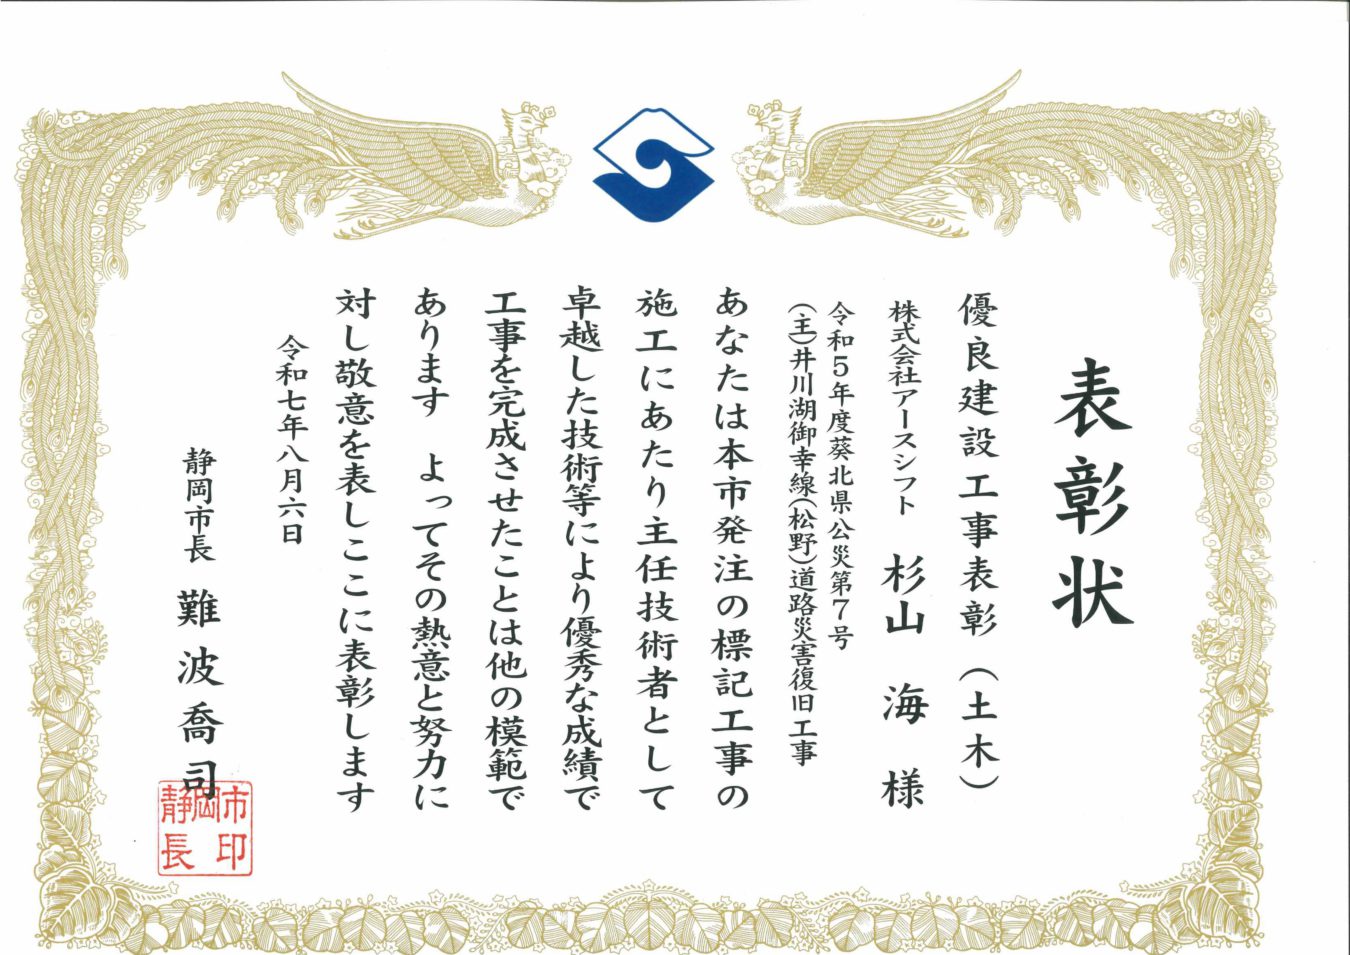 表彰状
優良建設工事表彰（土木）
株式会社アースシフト　杉山　海　様
令和５年度葵北県公災第７号
（主）井川湖御幸線（松野）道路災害復旧工事
あなたは本市発注の標記工事の
施工にあたり主任技術者として
卓越した技術等により優秀な成績で
工事を完成させたことは他の模範で
あります　よってその熱意と努力に
対し敬意を表しここに表彰します
令和七年八月六日
静岡市長　難波喬司
静岡市長印